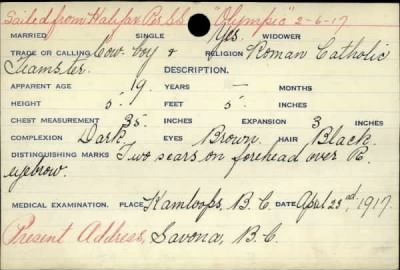 Sailed from Halifax Per S.S. "Olympic" 2-6-17
MARRIED SINGLE Yes. WIDOWER
TRADE OR CALLING Cow-boy & RELIGION Roman Catholic
Teamster. DESCRIPTION.
APPARENT AGE 19. YEARS — MONTHS
HEIGHT 5. FEET 5 INCHES
CHEST MEASUREMENT 35 INCHES EXPANSION 3 INCHES
COMPLEXION Dark EYES Brown. HAIR Black.
DISTINGUISHING MARKS Two scars on forehead over R.
eyebrow.
MEDICAL EXAMINATION. PLACE Kamloops, B.C. DATE April 23rd, 1917.
Present Address, Savona, B.C.